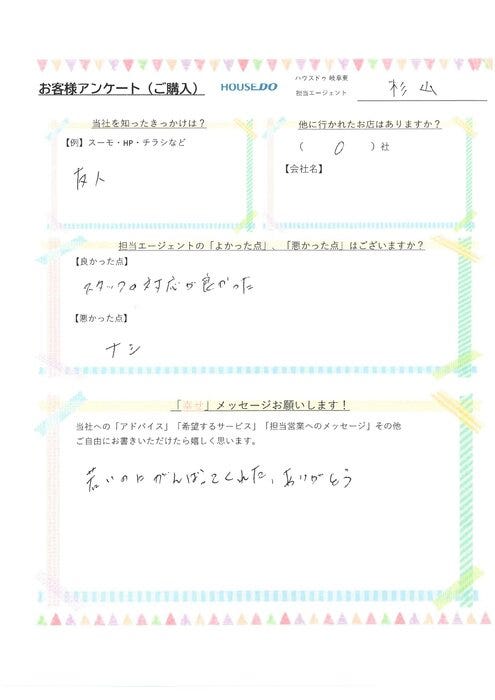 お客様アンケート（ご購入）
HOUSEDO
ハウスドゥ 岐阜東
担当エージェント
杉山
当社を知ったきっかけは？
【例】スーモ・HP・チラシなど
友人
他に行かれたお店はありますか？
（ 0 ）社
【会社名】
担当エージェントの「よかった点」、「悪かった点」はございますか？
【良かった点】
スタッフの対応が良かった
【悪かった点】
ナシ
「幸せ」メッセージお願いします！
当社への「アドバイス」「希望するサービス」「担当営業へのメッセージ」その他
ご自由にお書きいただけたら嬉しく思います。
若いのにがんばってくれた、ありがとう